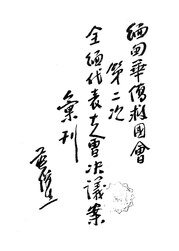 緬甸華僑救國會
第二次
全緬代表大會决議案
彙刊